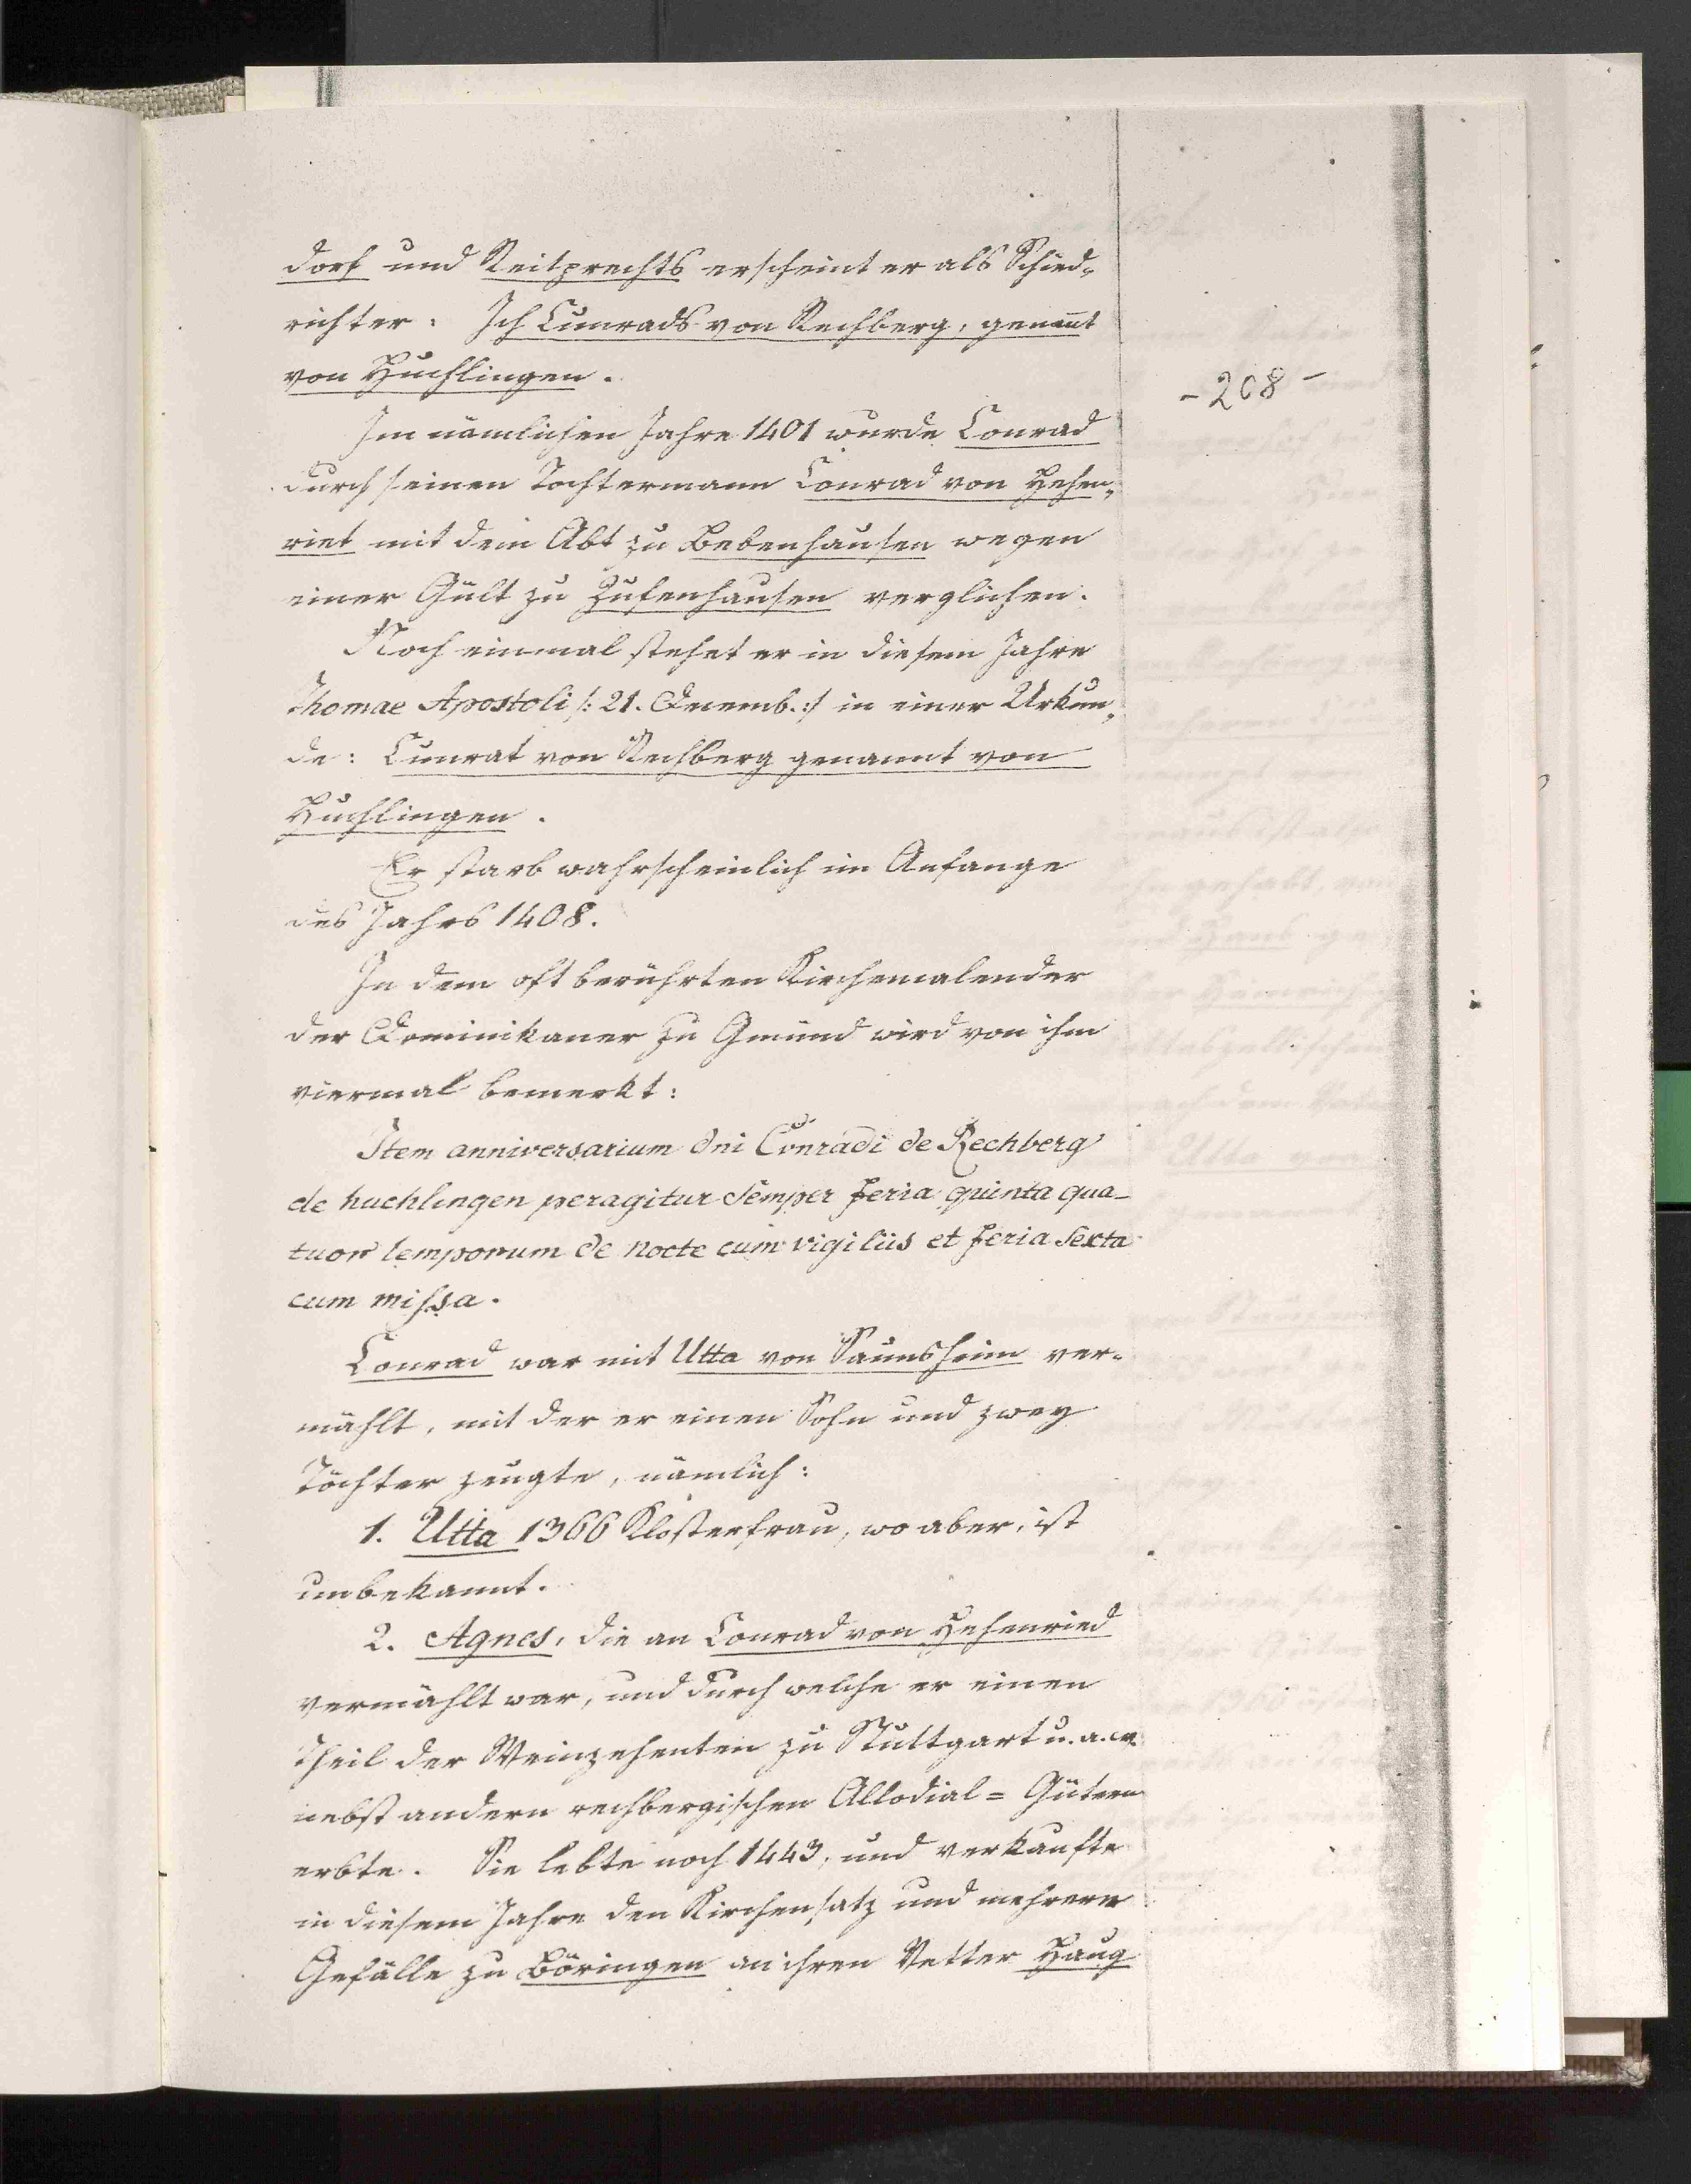 dorf und Reitprechts erscheint er als Schied-
richter: Ich Cunrads von Rechberg, genannt
von Huchlingen.
- 208 -
Im nämlichen Jahre 1401 wurde Conrad
durch seinen Tochtermann Conrad von Hehen-
riet mit dem Abt zu Bebenhausen wegen
einer Gült zu Zufenhausen verglichen.
Noch einmal stehet er in diesem Jahre
Thomae Apostoli /: 21. Decemb. :/ in einer Urkun-
de: Cunrat von Rechberg genannt von
Huchlingen.
Er starb wahrscheinlich im Anfange
des Jahrs 1408.
In dem oft berührten Kirchenkalender
der Dominikaner zu Gmünd wird von ihm
viermal bemerkt:
Item anniversarium dni Conradi de Rechberg
de huchlingen peragitur semper feria quinta qua-
tuor temporum de nocte cum vigiliis et feria sexta
cum missa.
Conrad war mit Utta von Saunsheim ver-
mählt, mit der er einen Sohn und zwey
Töchter zeugte, nämlich:
1. Utta 1366 Klosterfrau, wo aber, ist
unbekannt.
2. Agnes, die an Conrad von Hehenried
vermählt war, und durch welche er einen
Theil der Weinzehenten zu Stuttgart u. a. m.
nebst andern rechbergischen Allodial= Gütern
erbte. Sie lebte noch 1443, und verkaufte
in diesem Jahre den Kirchensatz und mehrere
Gefälle zu Böringen an ihren Vetter Haug